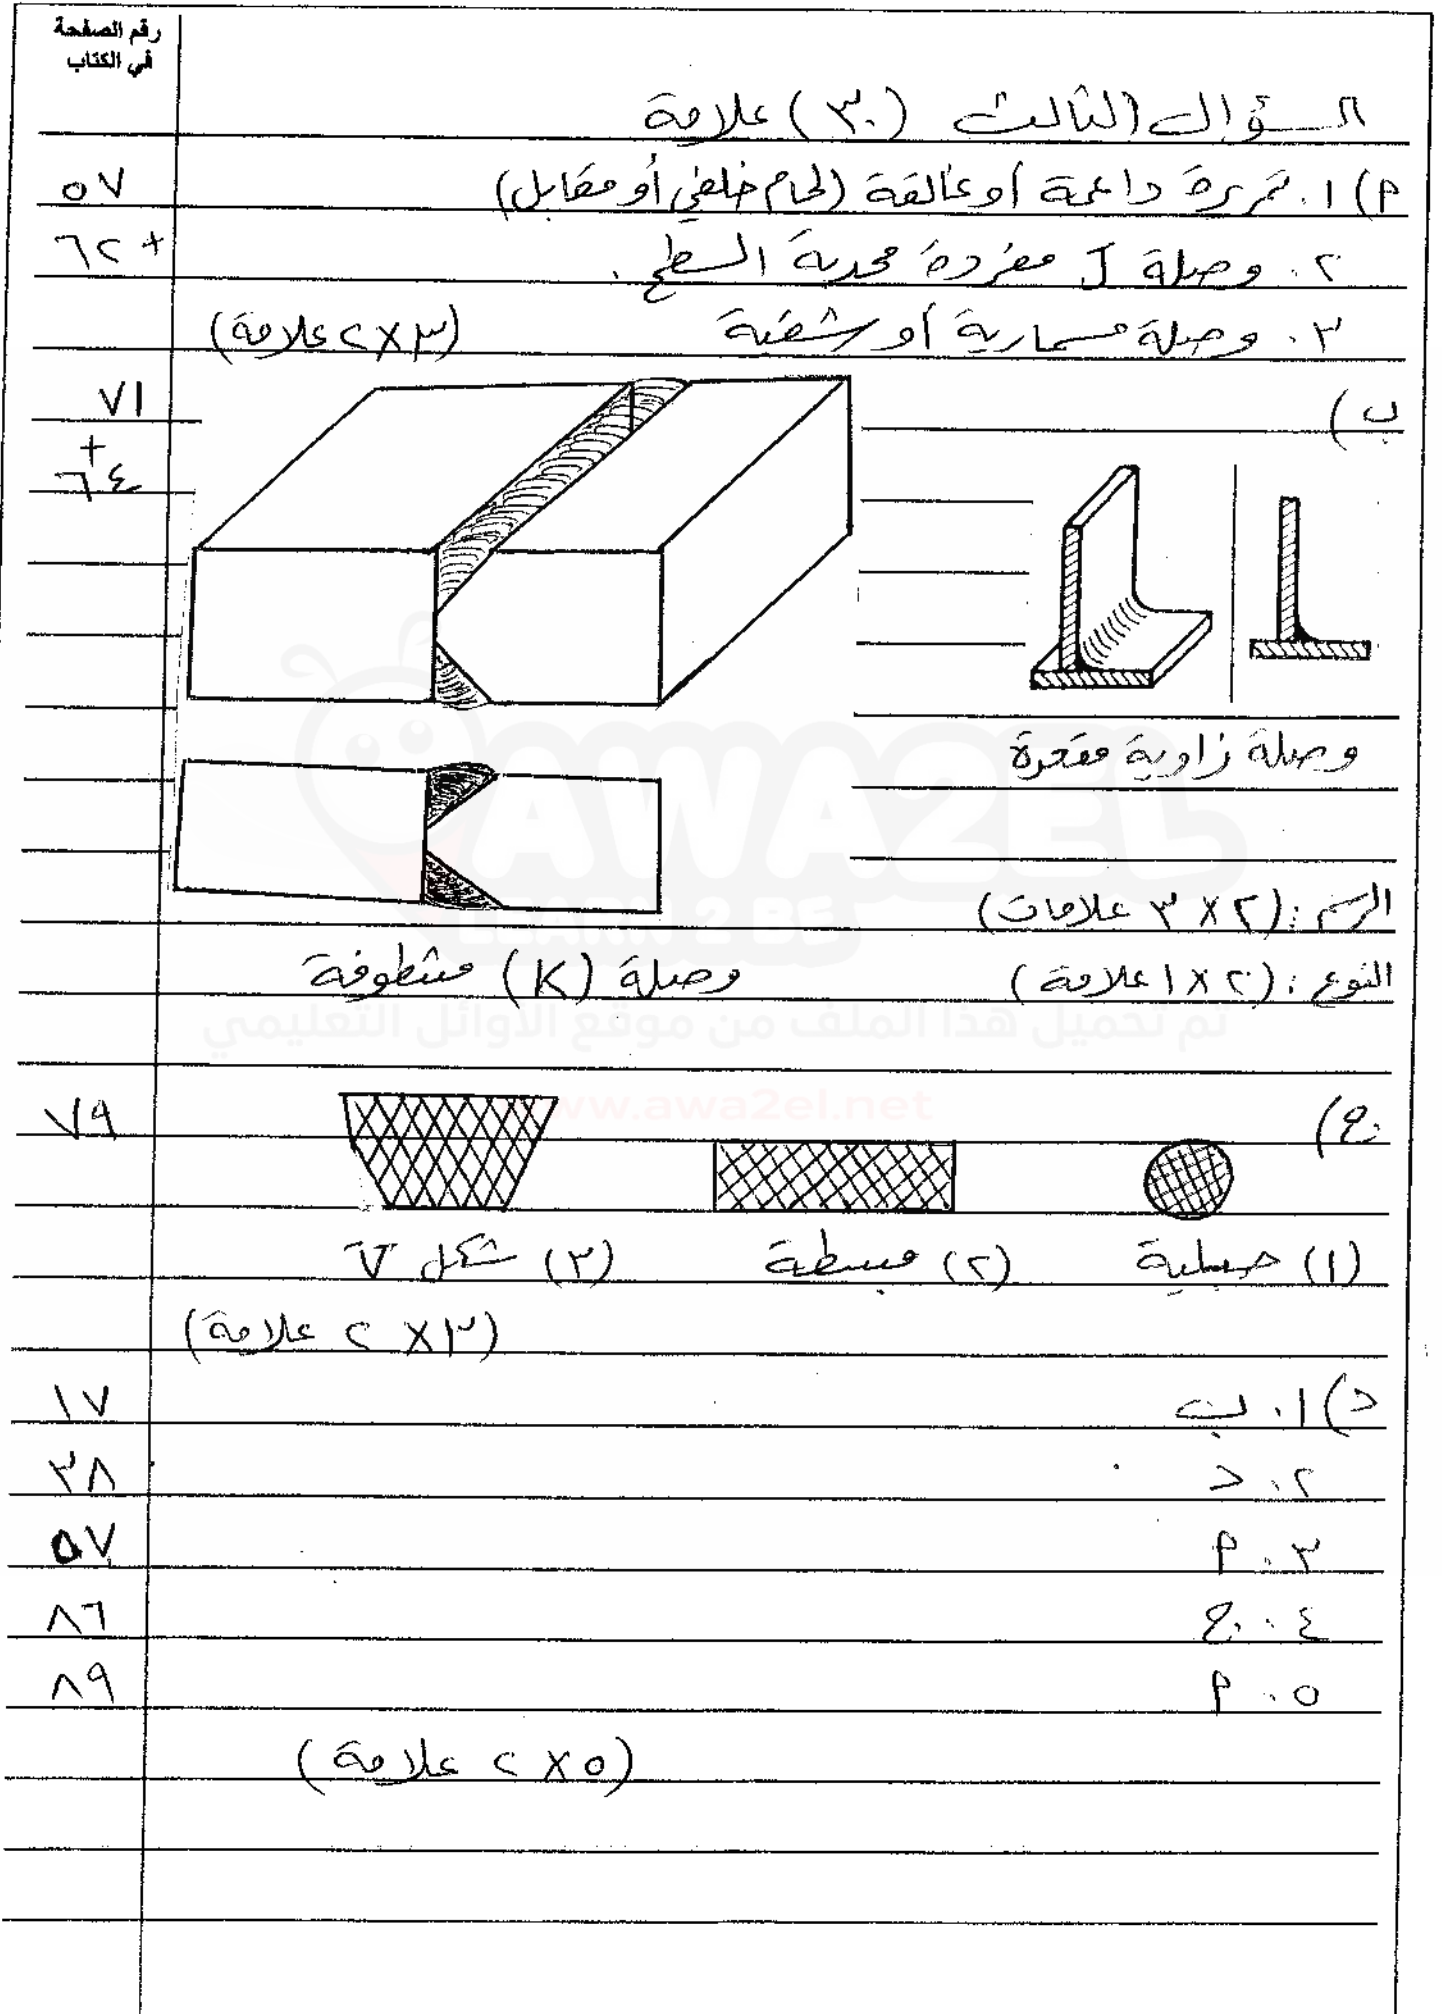 رقم الصفحة
في الكتاب
السؤال الثالث (٣٠) علامة
٥٧
أ) ١. تمريرة داعمة أو غالقة (لحام خلفي أو مقابل)
+ ٦٢
٢. وصلة J مفردة محدبة السطح.
٣. وصلة مسمارية أو شقية (٣×٢ علامة)
٧١
+
٦٤
ب)
وصلة زاوية مقعرة
الرسم: (٢×٣ علامات)
النوع: (٢×١ علامة) وصلة (K) مشطوفة
AWA2EL
LEARN 2 BE
تم تحميل هذا الملف من موقع الأوائل التعليمي
www.awa2el.net
٧٩
ج)
(١) حبلية (٢) مبسطة (٣) شكل V
(٣×٢ علامة)
١٧
د) ١. ب
٣٨
٢. د
٥٧
٣. أ
٨٦
٤. ج
٨٩
٥. أ
(٥×٢ علامة)